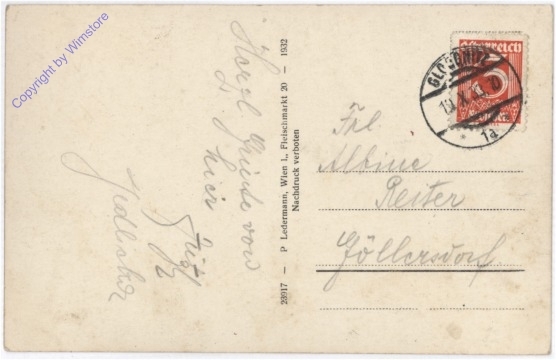 Copyright by Wimstore
Herzl. Grüße von
hier
Fritz
23917 — P. Ledermann, Wien I., Fleischmarkt 20 — 1932
Nachdruck verboten
Österreich
GLOGGNITZ
1a
Frl.
Albine
Reiter
Göllersdorf